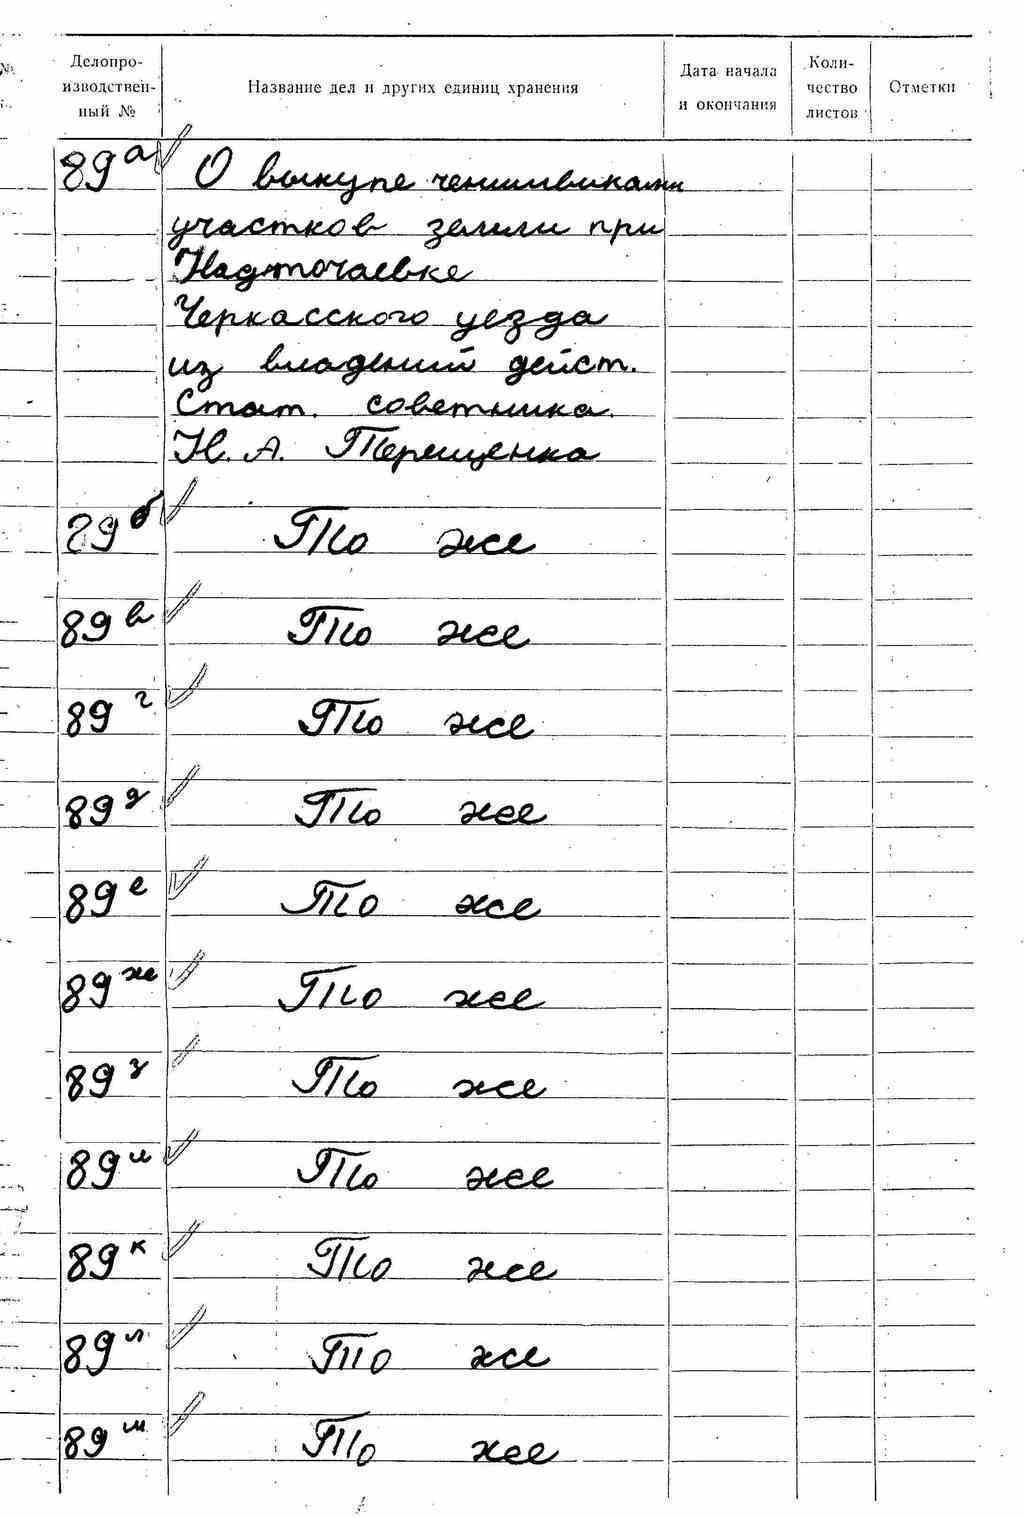 Делопро-
изводствен-
ный №
Название дел и других единиц хранения
Дата начала
и окончания
Коли-
чество
листов
Отметки
89 а О выкупе чиншевиками
участков земли при
Надточаевке
Черкасского уезда
из владений дейст.
Стат. советника
Н. А. Терещенко
89 б То же
89 в То же
89 г То же
89 д То же
89 е То же
89 ж То же
89 з То же
89 и То же
89 к То же
89 л То же
89 м То же